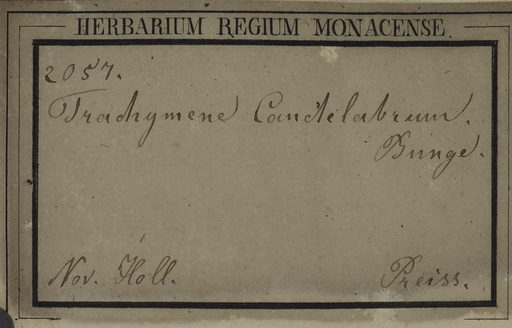 HERBARIUM REGIUM MONACENSE.
2057.
Trachymene Candelabrum.
Bunge.
Nov. Holl.
Preiss.